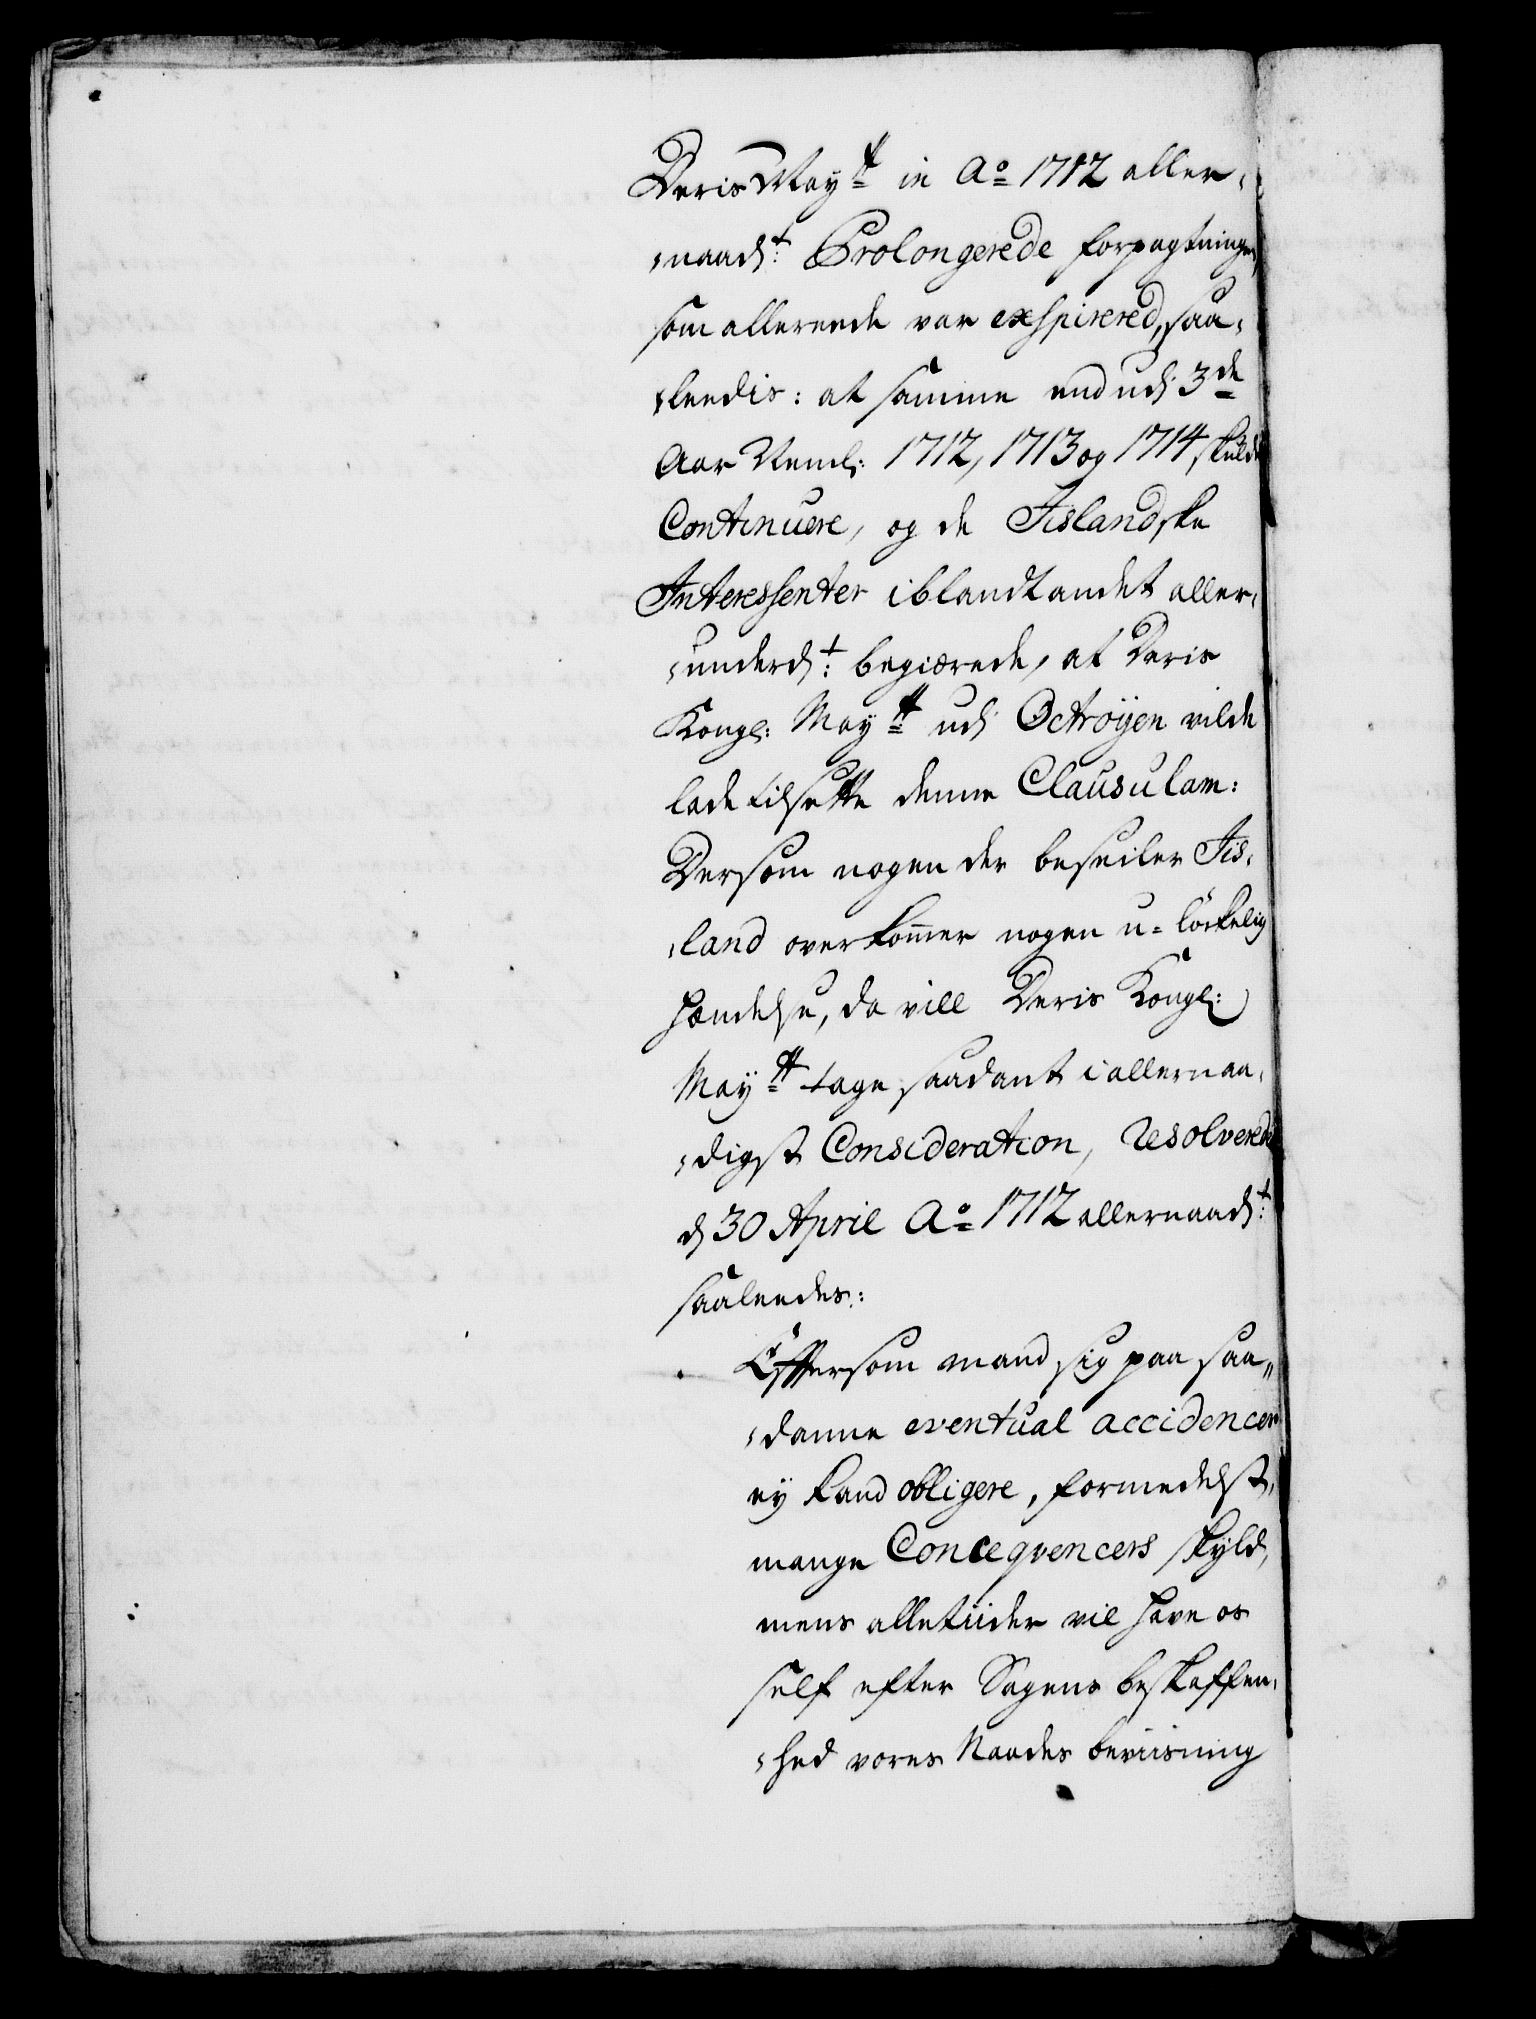 Deris May:tt in Ao 1712 aller-
-naad:t Prolongerede forpagtningen
som allereede var exspirered, saa-
-leedis: at samme end udj 3de
Aar Neml: 1712, 1713 og 1714 skulde
Continuere, og de Jislandske
Interessenter iblandt andet aller-
-underd:t begiærede, at Deris
Kongl: May:tt udj Octroÿen vilde
lade tilsette denne Clausulam:
Dersom nogen der beseiler Jis-
-land overkom̄er nogen u-lÿkkelig
hændelse, da vill Deris Kongl:
May:tt tage saadant i allernaa-
-digst Consideration, Resolverede
d 30 April Ao 1712 allernaad:t
saaleedes:
Efftersom mand sig paa saa-
-danne eventual accidencer
ey kand obligere, formedelst
mange Conceqvencers skyld,
mens alletiider vil have os
self efter Sagens beskaffen-
-hed vores Naades beviisning